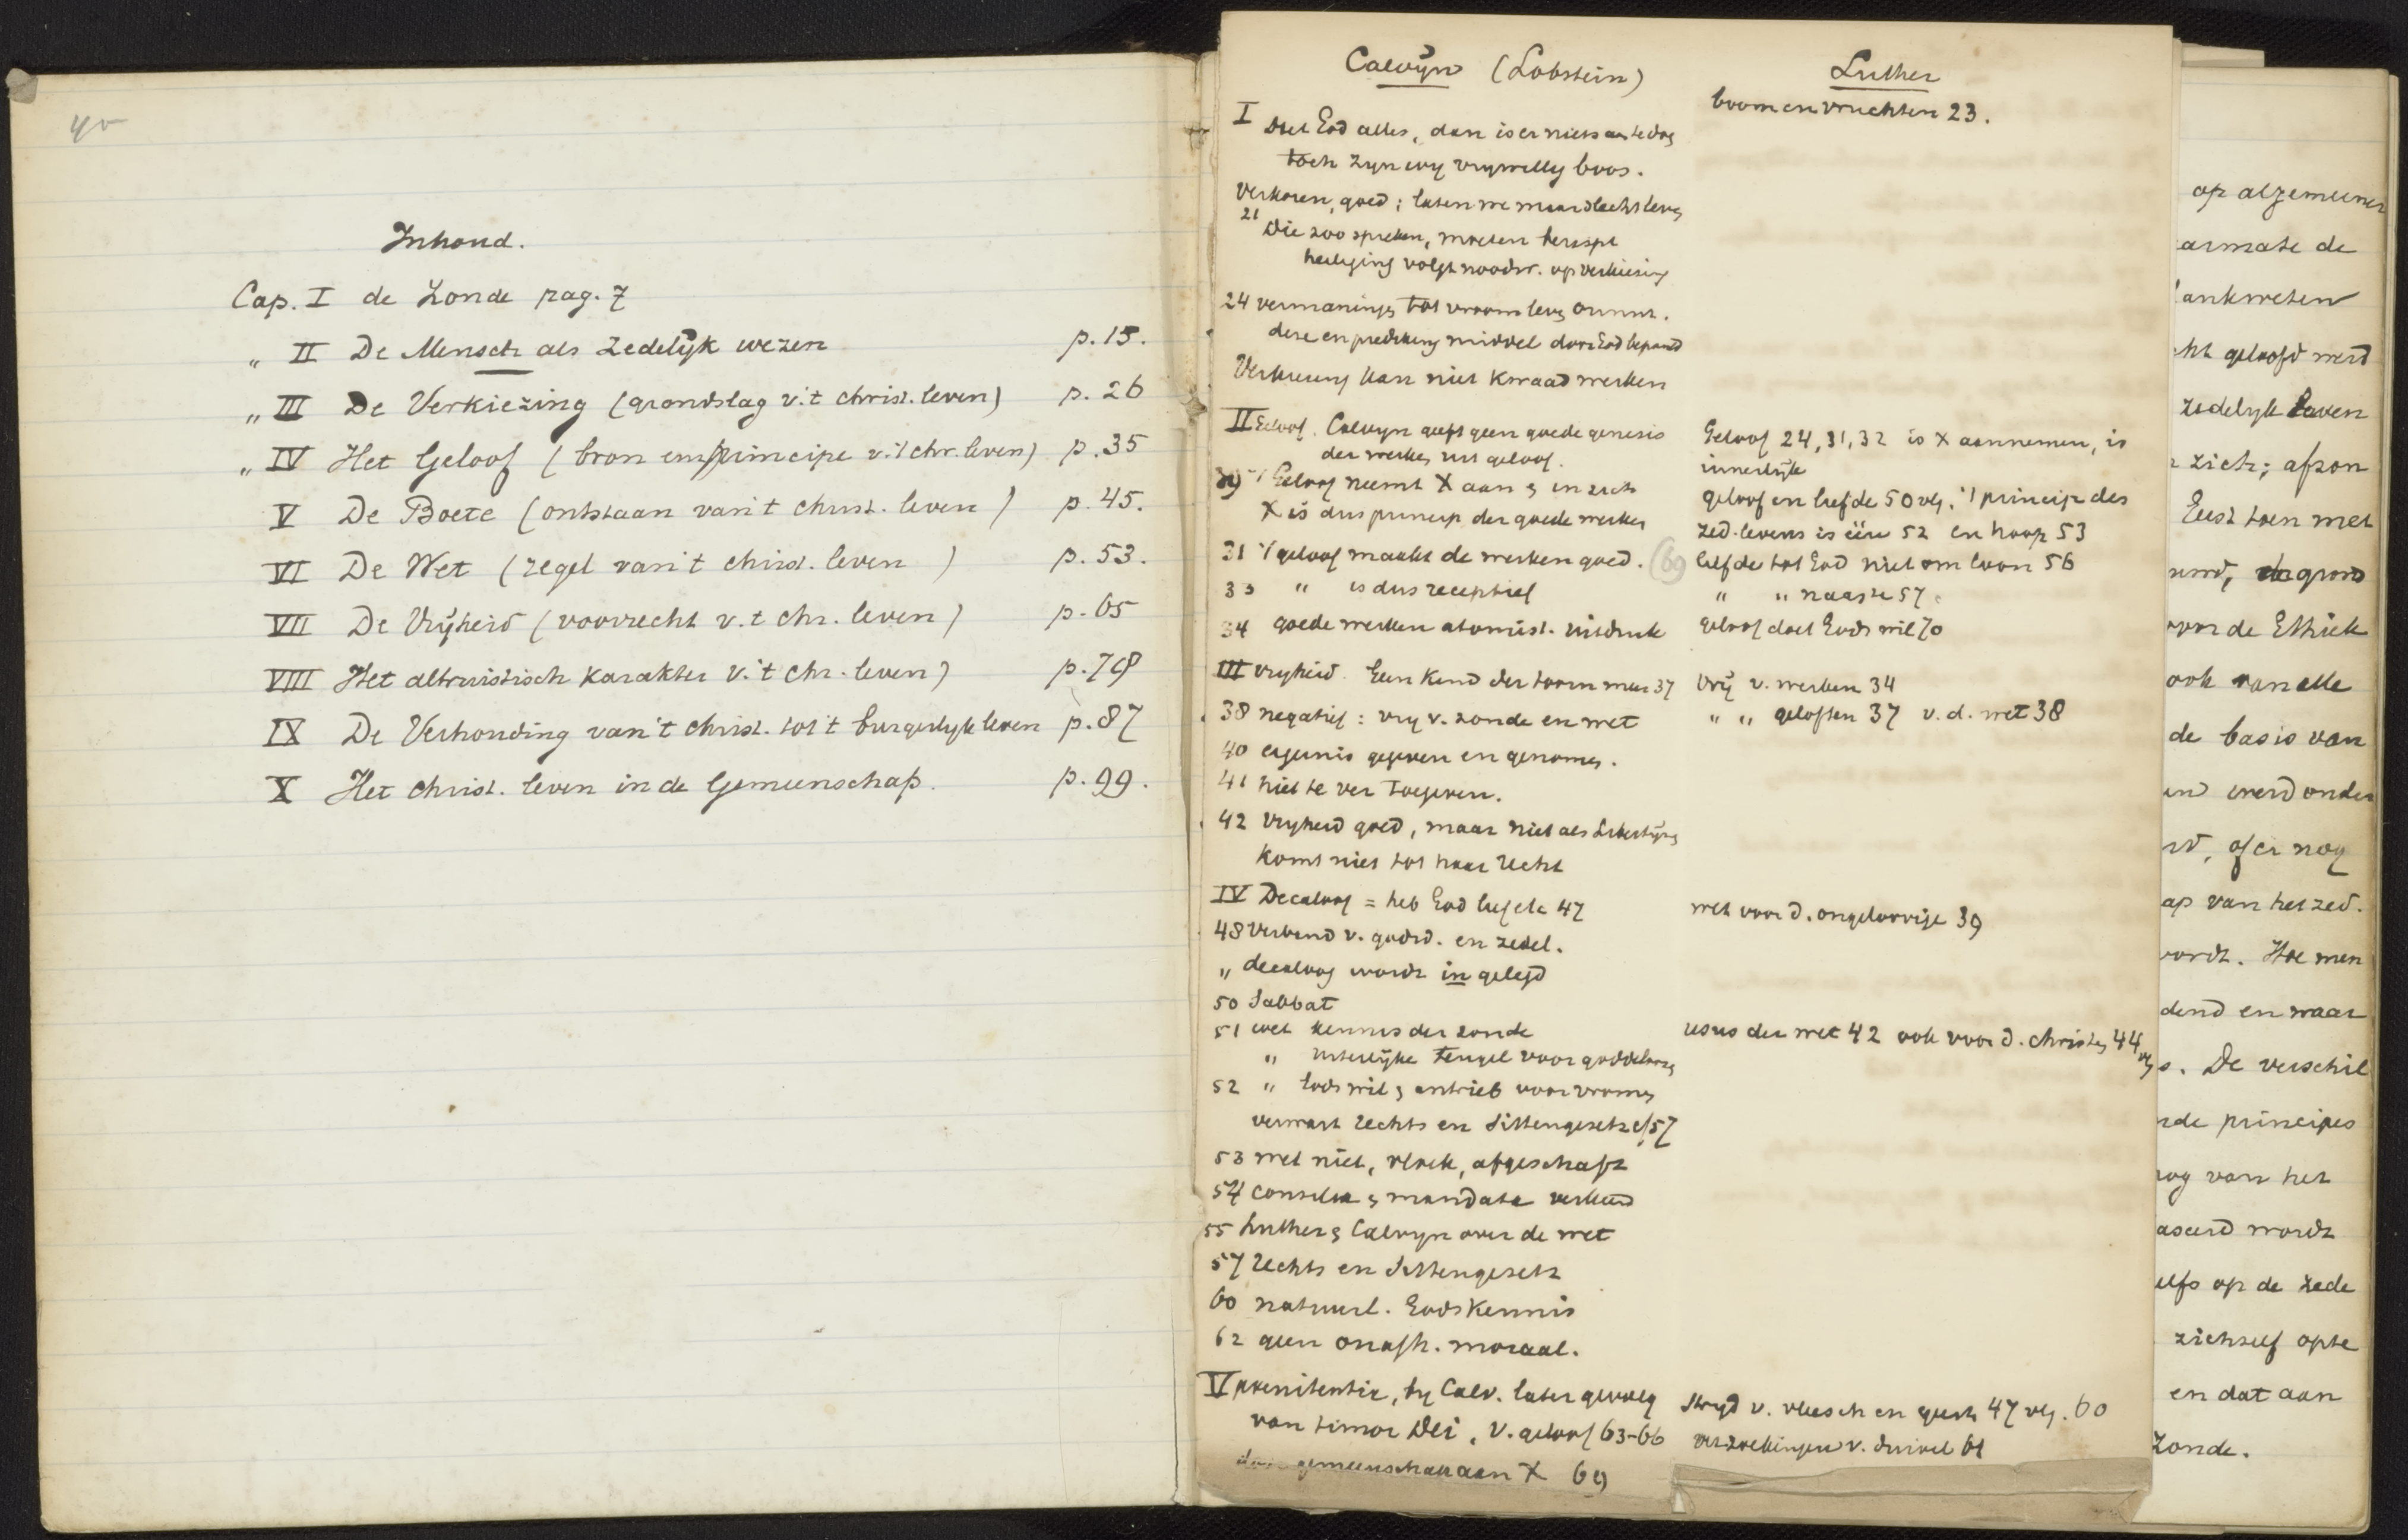 40
Inhoud.
Cap. I de Zonde pag. 7
„ II De Mensch als Zedelijk wezen p. 15.
„ III De Verkiezing (grondslag v. 't christ. leven) p. 26
„ IV Het Geloof (bron en principe v. 't chr. leven) p. 35
V De Boete (ontstaan van 't christ. leven) p. 45.
VI De Wet (regel van 't christ. leven) p. 53.
VII De Vrijheid (voorrecht v. 't chr. leven) p. 65
VIII Het altruistisch karakter v. 't chr. leven) p. 78
IX De Verhouding van 't christ. tot 't burgerlijk leven p. 87
X Het christ. leven in de Gemeenschap. p. 99.
Calvijn (Lobstein)
I Doet God alles, dan is er niets aan te doen
toch zijn wij vrijwillig boos.
Verkoren, goed; laten we maar slecht leven
21 Die zoo spreken, moeten berispt
heiliging volgt noodw. op verkiezing
24 vermaningen tot vroom leven onnut.
deze en prediking middel door God bepaald
Verkiezing kan niet kwaad werken
II Geloof. Calvijn geeft geen goede genesis
der werken uit geloof.
29 't Geloof neemt X aan & in zich
X is dus princip der goede werken
31 't geloof maakt de werken goed. (69)
33 „ is dus receptief
34 goede werken atomist. uitdruk
III vrijheid. Geen kind des toorn meer 37
38 negatief: vrij v. zonde en wet
40 ergernis gegeven en genomen.
41 niet te ver toegeven.
42 Vrijheid goed, maar niet als Libertijns
komt niet tot haar recht
IV Decaloog = heb God lief etc 47
48 Verband v. godsd. en zedel.
„ decaloog wordt in gelegd
50 Sabbat
51 wet kennis der zonde
„ uiterlijke teugel voor goddeloozen
52 „ Gods wil & antrieb voor vromen
verwart rechts en Sittengesetz cf 57
53 wet niet, vloek, afgeschaft
54 consilia & mandata verkeerd
55 Luther & Calvijn over de wet
57 Rechts en Sittengesetz
60 natuurl. Godskennis
62 geen onafh. moraal.
V poenitentie, bij Calv. later gevolg
van timor Dei, v. geloof 63-66
door gemeenschap aan X 69
Luther
boom en vruchten 23.
Geloof 24, 31, 32 is X aannemen, is
innerlijk
geloof en liefde 50 vlg. 't princip des
zed. levens is één 52 en hoop 53
liefde tot God niet om loon 56
„ „ naaste 57
geloof doet Gods wil 70
Vrij v. werken 34
„ „ geloften 37 v. d. wet 38
wet voor d. ongeloovige 39
usus der wet 42 ook voor d. christen 44 vlg
Strijd v. vleesch en geest 47 vlg. 60
verzoekingen v. duivel 61
op algemeener
armate de
ankweten
cht geloofd werd
zedelijk leven
zich; afzon
Eerst toen met
grond
voor de Ethiek
ook van elle
de basis van
werd onder
of er nog
ap van het zed.
wordt. Hoe men
dend en waar
s. De verschil
nde principes
nog van het
aseerd wordt
elfs op de zede
zichzelf opte
en dat aan
Zonde.